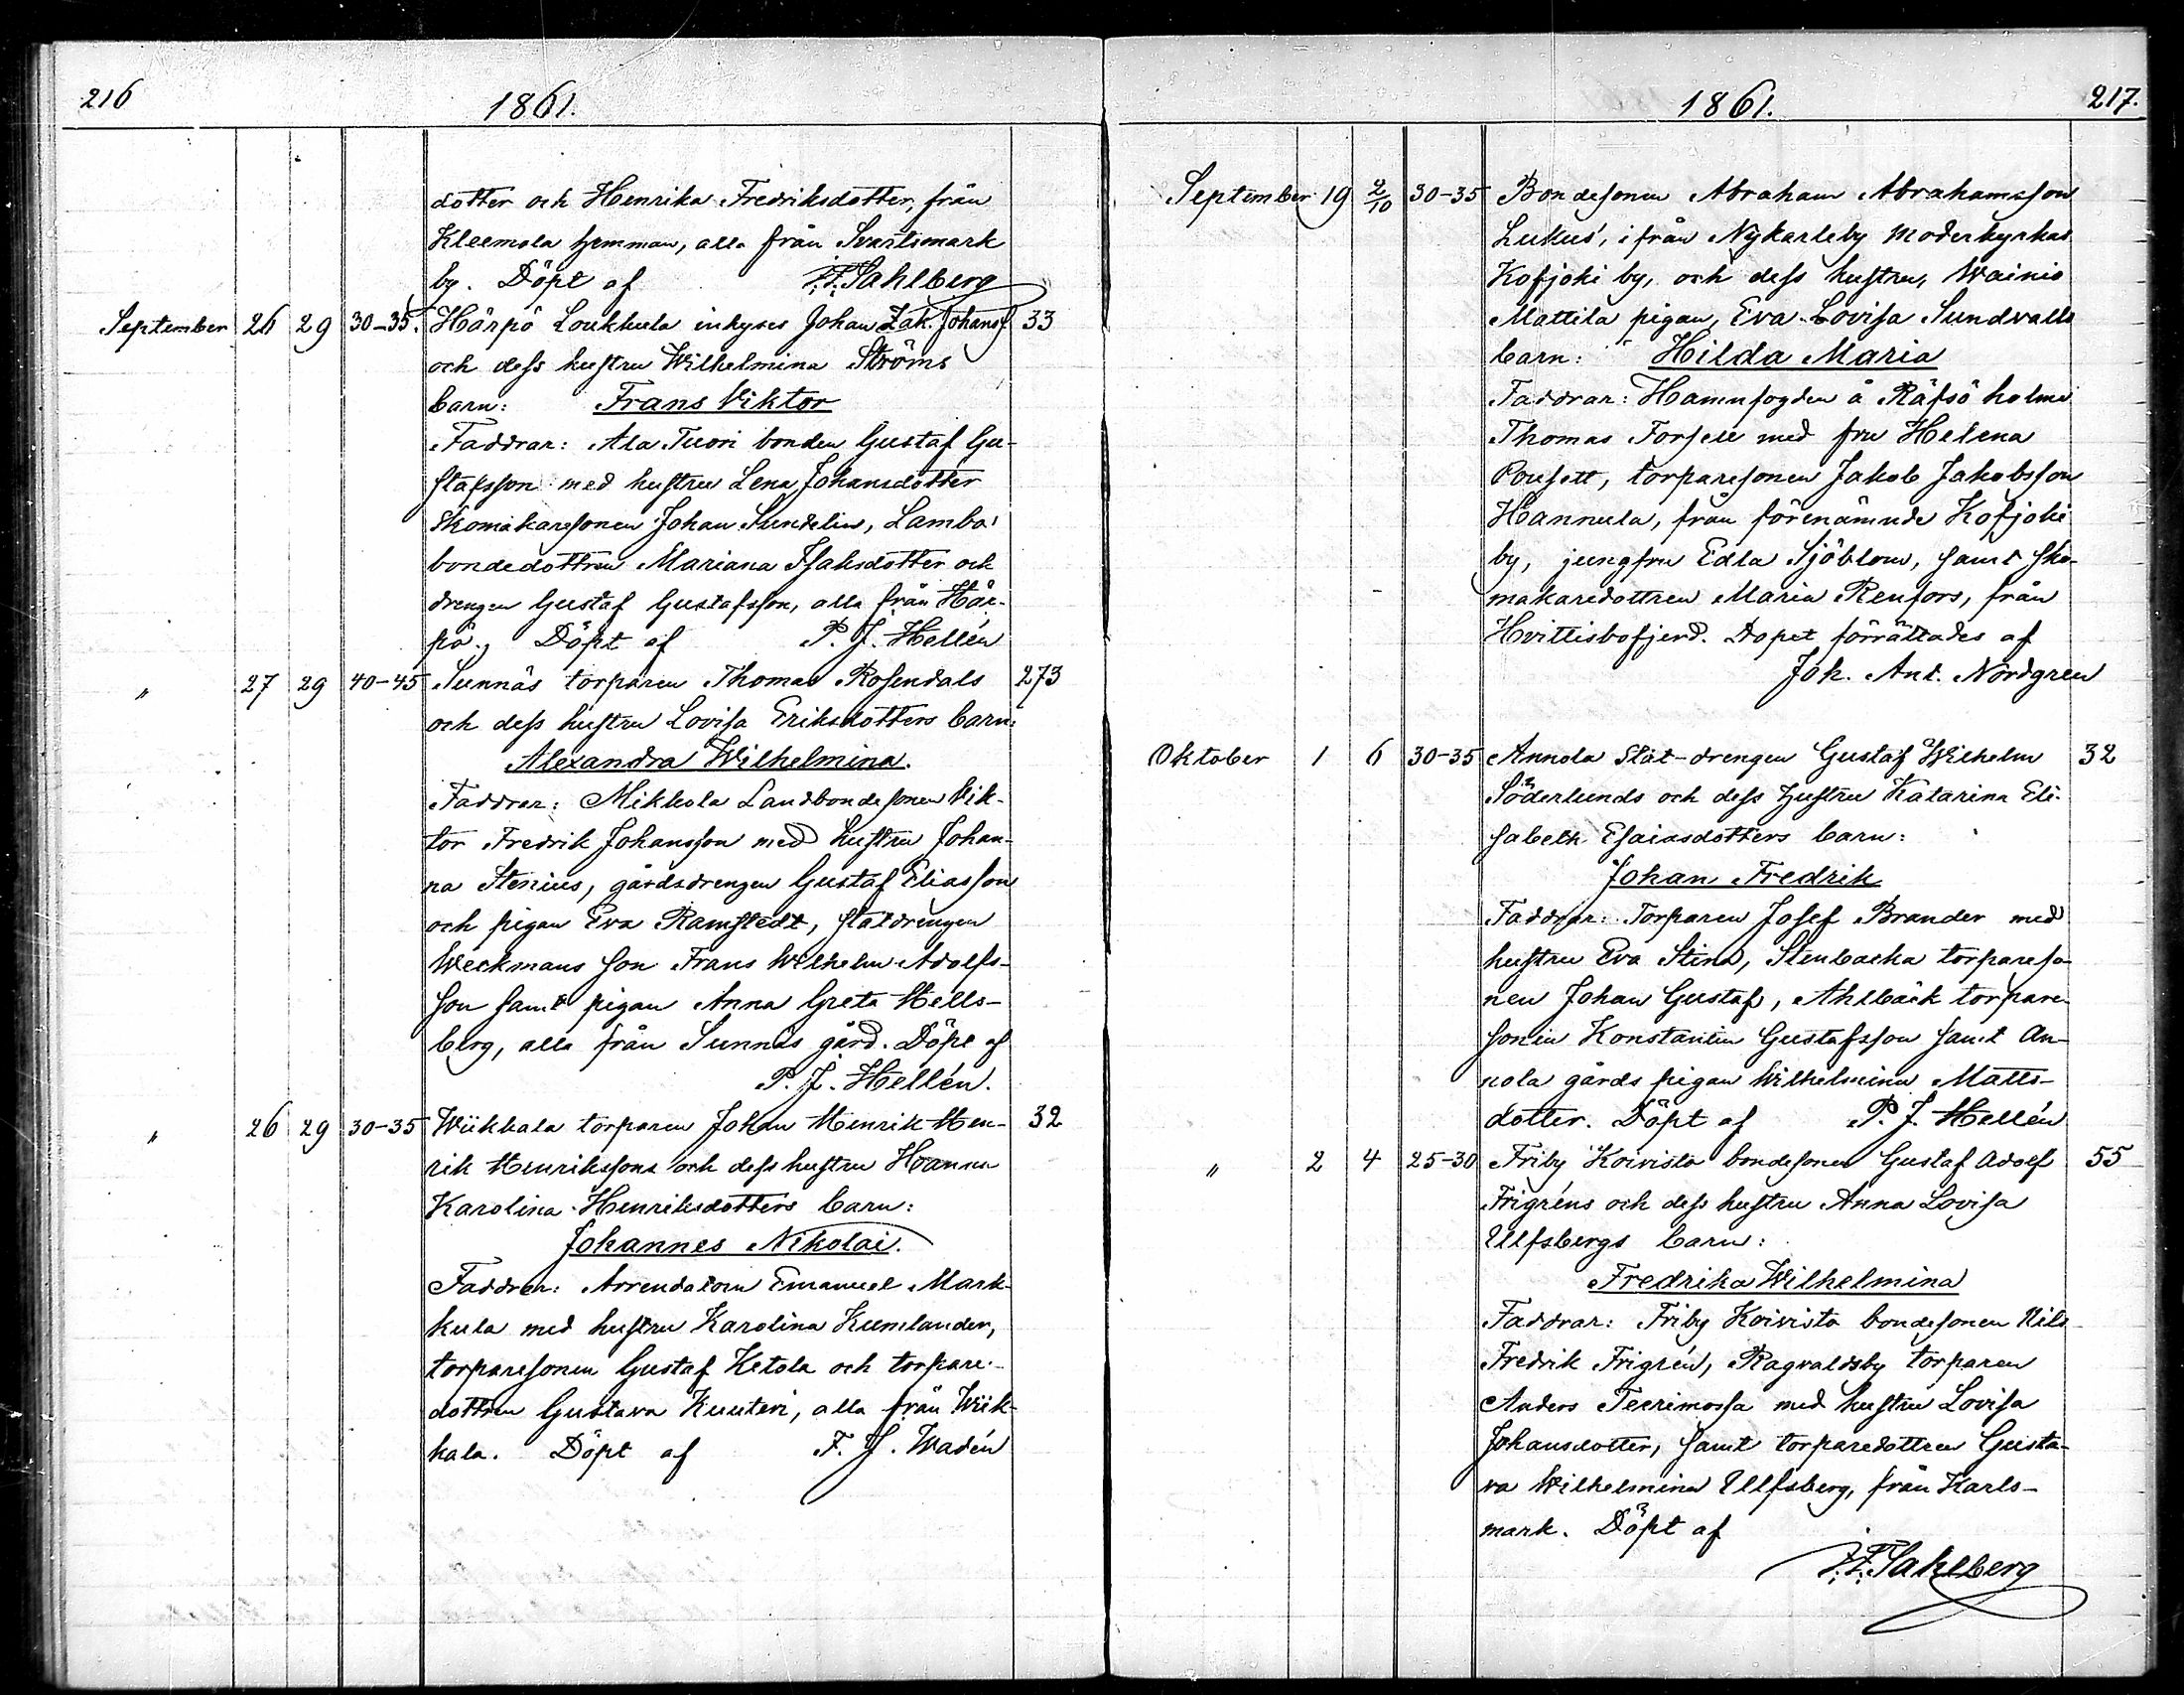 216
1861.
dotter och Henrika Fredriksdotter, från
Kleemola hemman, alla från Svartsmark
by. Döpt af F. F. Sahlberg
September 26 29 30-35. Hårpö Loukkula inhyses Johan Zak. Johanss. 33
och dess hustru Wilhelmina Ströms
barn: Frans Viktor
Faddrar: Ala Tuori bonden Gustaf Gu-
stafsson med hustru Lena Johansdotter
Skomakaresonen Johan Sundelin, Lamba
bondedottren Mariana Isaksdotter och
drengen Gustaf Gustafsson, alla från Hår-
pö. Döpt af P. J. Hellén
" 27 29 40-45 Sunnäs torparen Thomas Rosendals 273
och dess hustru Lovisa Eriksdotters barn:
Alexandra Wilhelmina.
Faddrar: Mikkola Landbondesonen Vik-
tor Fredrik Johansson med hustru Johan-
na Stenius, gårdsdrengen Gustaf Eliasson
och pigan Eva Ramstedt, statdrengen
Weckmans son Frans Wilhelm Adolfs-
son samt pigan Anna Greta Hells-
berg, alla från Sunnäs gård. Döpt af
P. J. Hellén.
" 26 29 30-35 Wiikkala torparen Johan Henrik Hen- 32
rik Henrikssons och dess hustru Hanna
Karolina Henriksdotters barn:
Johannes Nikolai.
Faddrar: Arrendatorn Emanuel Mark-
kula med hustru Karolina Kumlander,
torparesonen Gustaf Ketola och torpare-
dottren Gustava Kuuteri, alla från Wiik-
kala. Döpt af F. J. Wadén
1861.
217.
September 19 2/10 30-35 Bondesonen Abraham Abrahamsson
Lukus', ifrån Nykarleby moderkyrkas
Kofjoki by, och dess hustru, Wainio
Mattila pigan, Eva Lovisa Sundvalls
barn: Hilda Maria
Faddrar: Hamnfogden å Räfsö holme
Thomas Forsell med fru Helena
Pousett, torparesonen Jakob Jakobsson
Hannula, från förenämnde Kofjoki
by, jungfru Edla Sjöblom, samt sko-
makaredottren Maria Renfors, från
Hvittisbofjerd. Dopet förrättades af
Joh. Ant. Nordgren
Oktober 1 6 30-35 Annola Stat-drengen Gustaf Wilhelm 32
Söderlunds och dess hustru Katarina Eli-
sabeth Esaiasdotters barn:
Johan Fredrik
Faddrar: Torparen Josef Brander med
hustru Eva Stina, Stenbacka torpareso-
nen Johan Gustaf, Ahlbäck torpare-
sonen Konstantin Gustafsson samt An-
nola gårds pigan Wilhelmina Matts-
dotter. Döpt af P. J. Hellén
" 2 4 25-30 Friby Koivisto bondesonen Gustaf Adolf 55
Frigréns och dess hustru Anna Lovisa
Ulfsbergs barn:
Fredrika Wilhelmina
Faddrar: Friby Koivisto bondesonen Nils
Fredrik Frigrén, Ragvaldsby torparen
Anders Teerimossa med hustru Lovisa
Johansdotter, samt torparedottren Gusta-
va Wilhelmina Ulfsberg, från Karls-
mark. Döpt af
F. F. Sahlberg